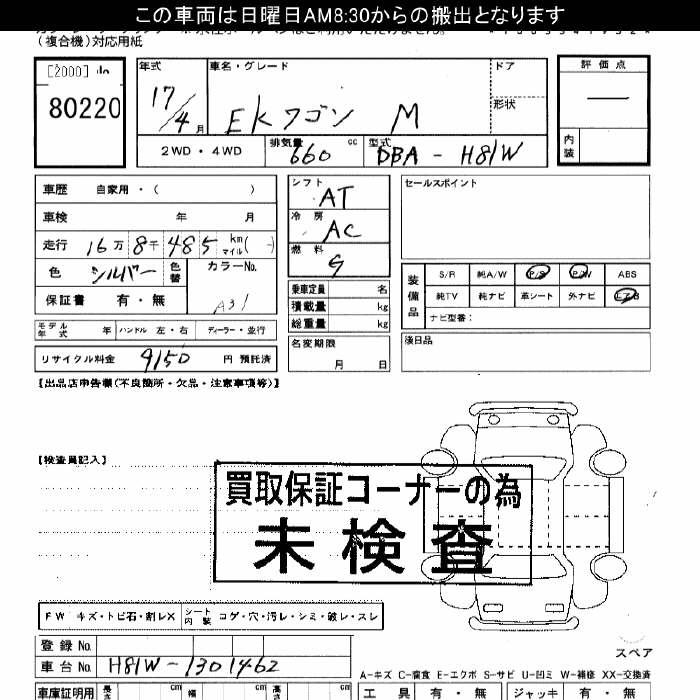 この車両は日曜日AM8:30からの搬出となります
(複合機)対応用紙
[2000]
80220
年式 車名・グレード ドア 評価点
17/4月 EKワゴン M 形状 —
2WD・4WD 排気量 660 cc 型式 DBA - H81W 内装
車歴 自家用・( )
車検 年 月
走行 16万 8千 485 km マイル( - )
色 シルバー 色替 カラーNo. A31
保証書 有・無
モデル年式 年 ハンドル 左・右 ディーラー・並行
リサイクル料金 9150 円 預託済
シフト AT
冷房 AC
燃料 G
乗車定員 名
積載量 kg
総重量 kg
名変期限 月 日
セールスポイント
装備品 S/R 純A/W P/S P/W ABS
純TV 純ナビ 革シート 外ナビ エアB
ナビ型番:
後日品
【出品店申告欄(不良箇所・欠品・注意事項等)】
【検査員記入】
買取保証コーナーの為
未検査
FW キズ・トビ石・割レX シート内装 コゲ・穴・汚レ・シミ・破レ・スレ
登録No.
車台No. H81W-1301462
スペア
A-キズ C-腐食 E-エクボ S-サビ U-凹ミ W-補修 XX-交換済
車庫証明用 長さ cm 幅 cm 高さ cm 工具 有・無 ジャッキ 有・無